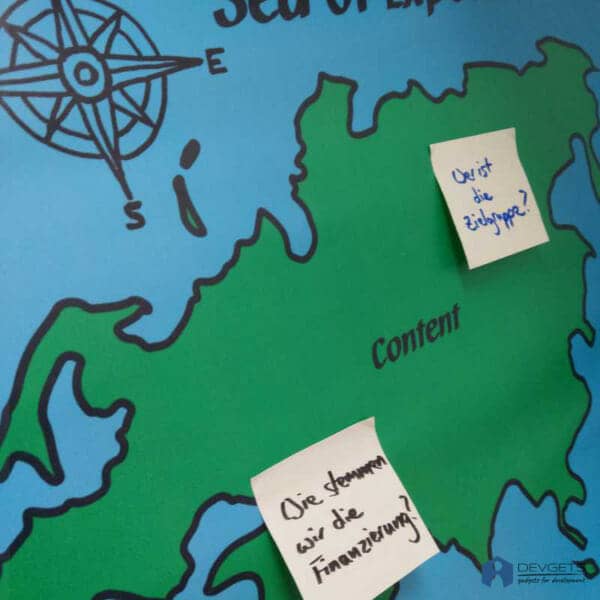 Sea of
E
S
Wer ist
die
Zielgruppe?
Content
Wie stemmen
wir die
Finanzierung?
DEVGETS
gadgets for development